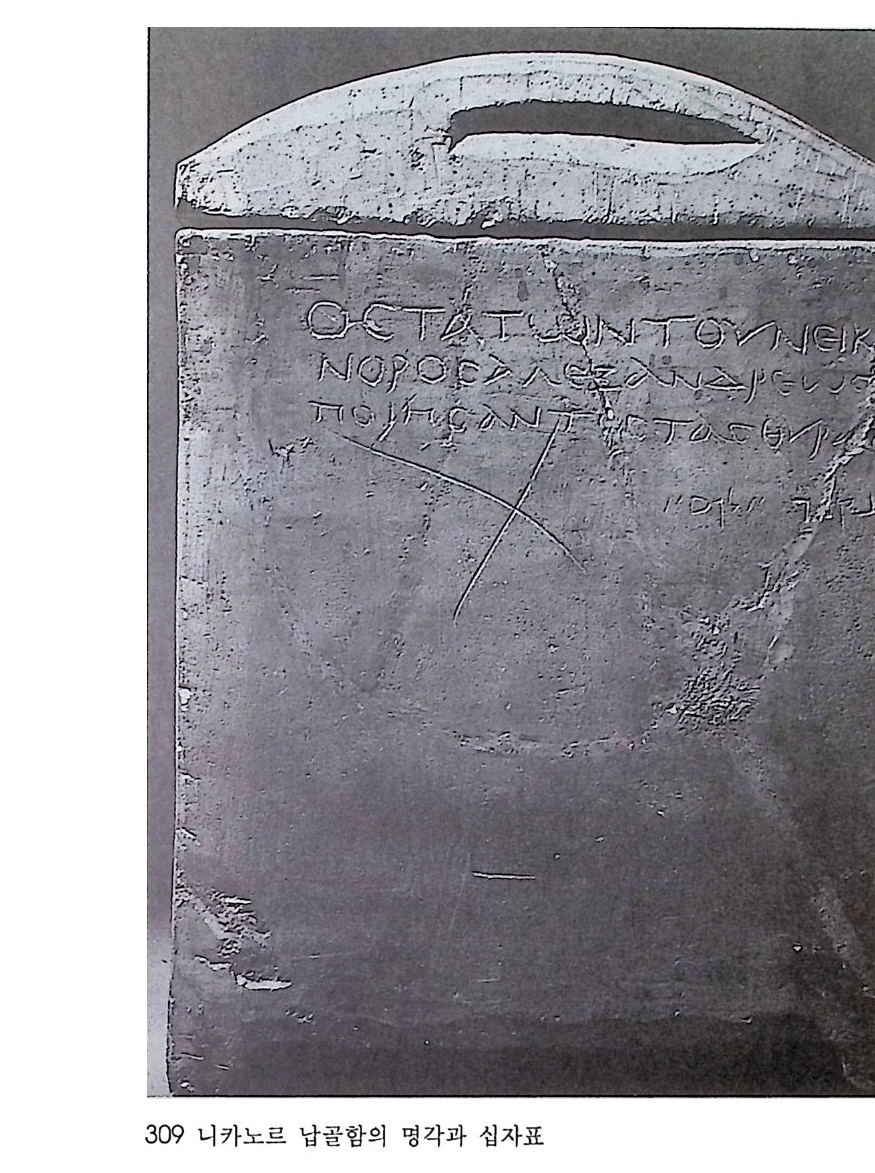 ΟΣΤΑΤΩΝΤΟΥΝΕΙΚ
ΝΟΡΟΣΑΛΕΞΑΝΔΡΕΩΣ
ΠΟΙΗΣΑΝΤΟΣΤΑΣΘΥΡΑ
309 니카노르 납골함의 명각과 십자표